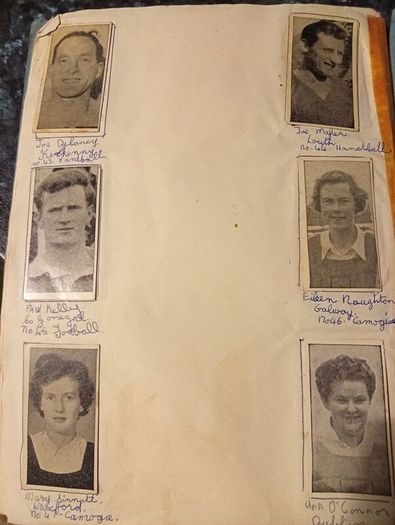 Joe Delaney
Kilkenny
No. 43. Handball.
Joe Maher.
Louth.
No. 44. Handball
Paul Kelly
Co Donegal
No. 45 Football
Eileen Naughton
Galway.
No 46. Camogie
Mary Sinnott.
Wexford.
No 47 - Camogie.
Ann O'Connor